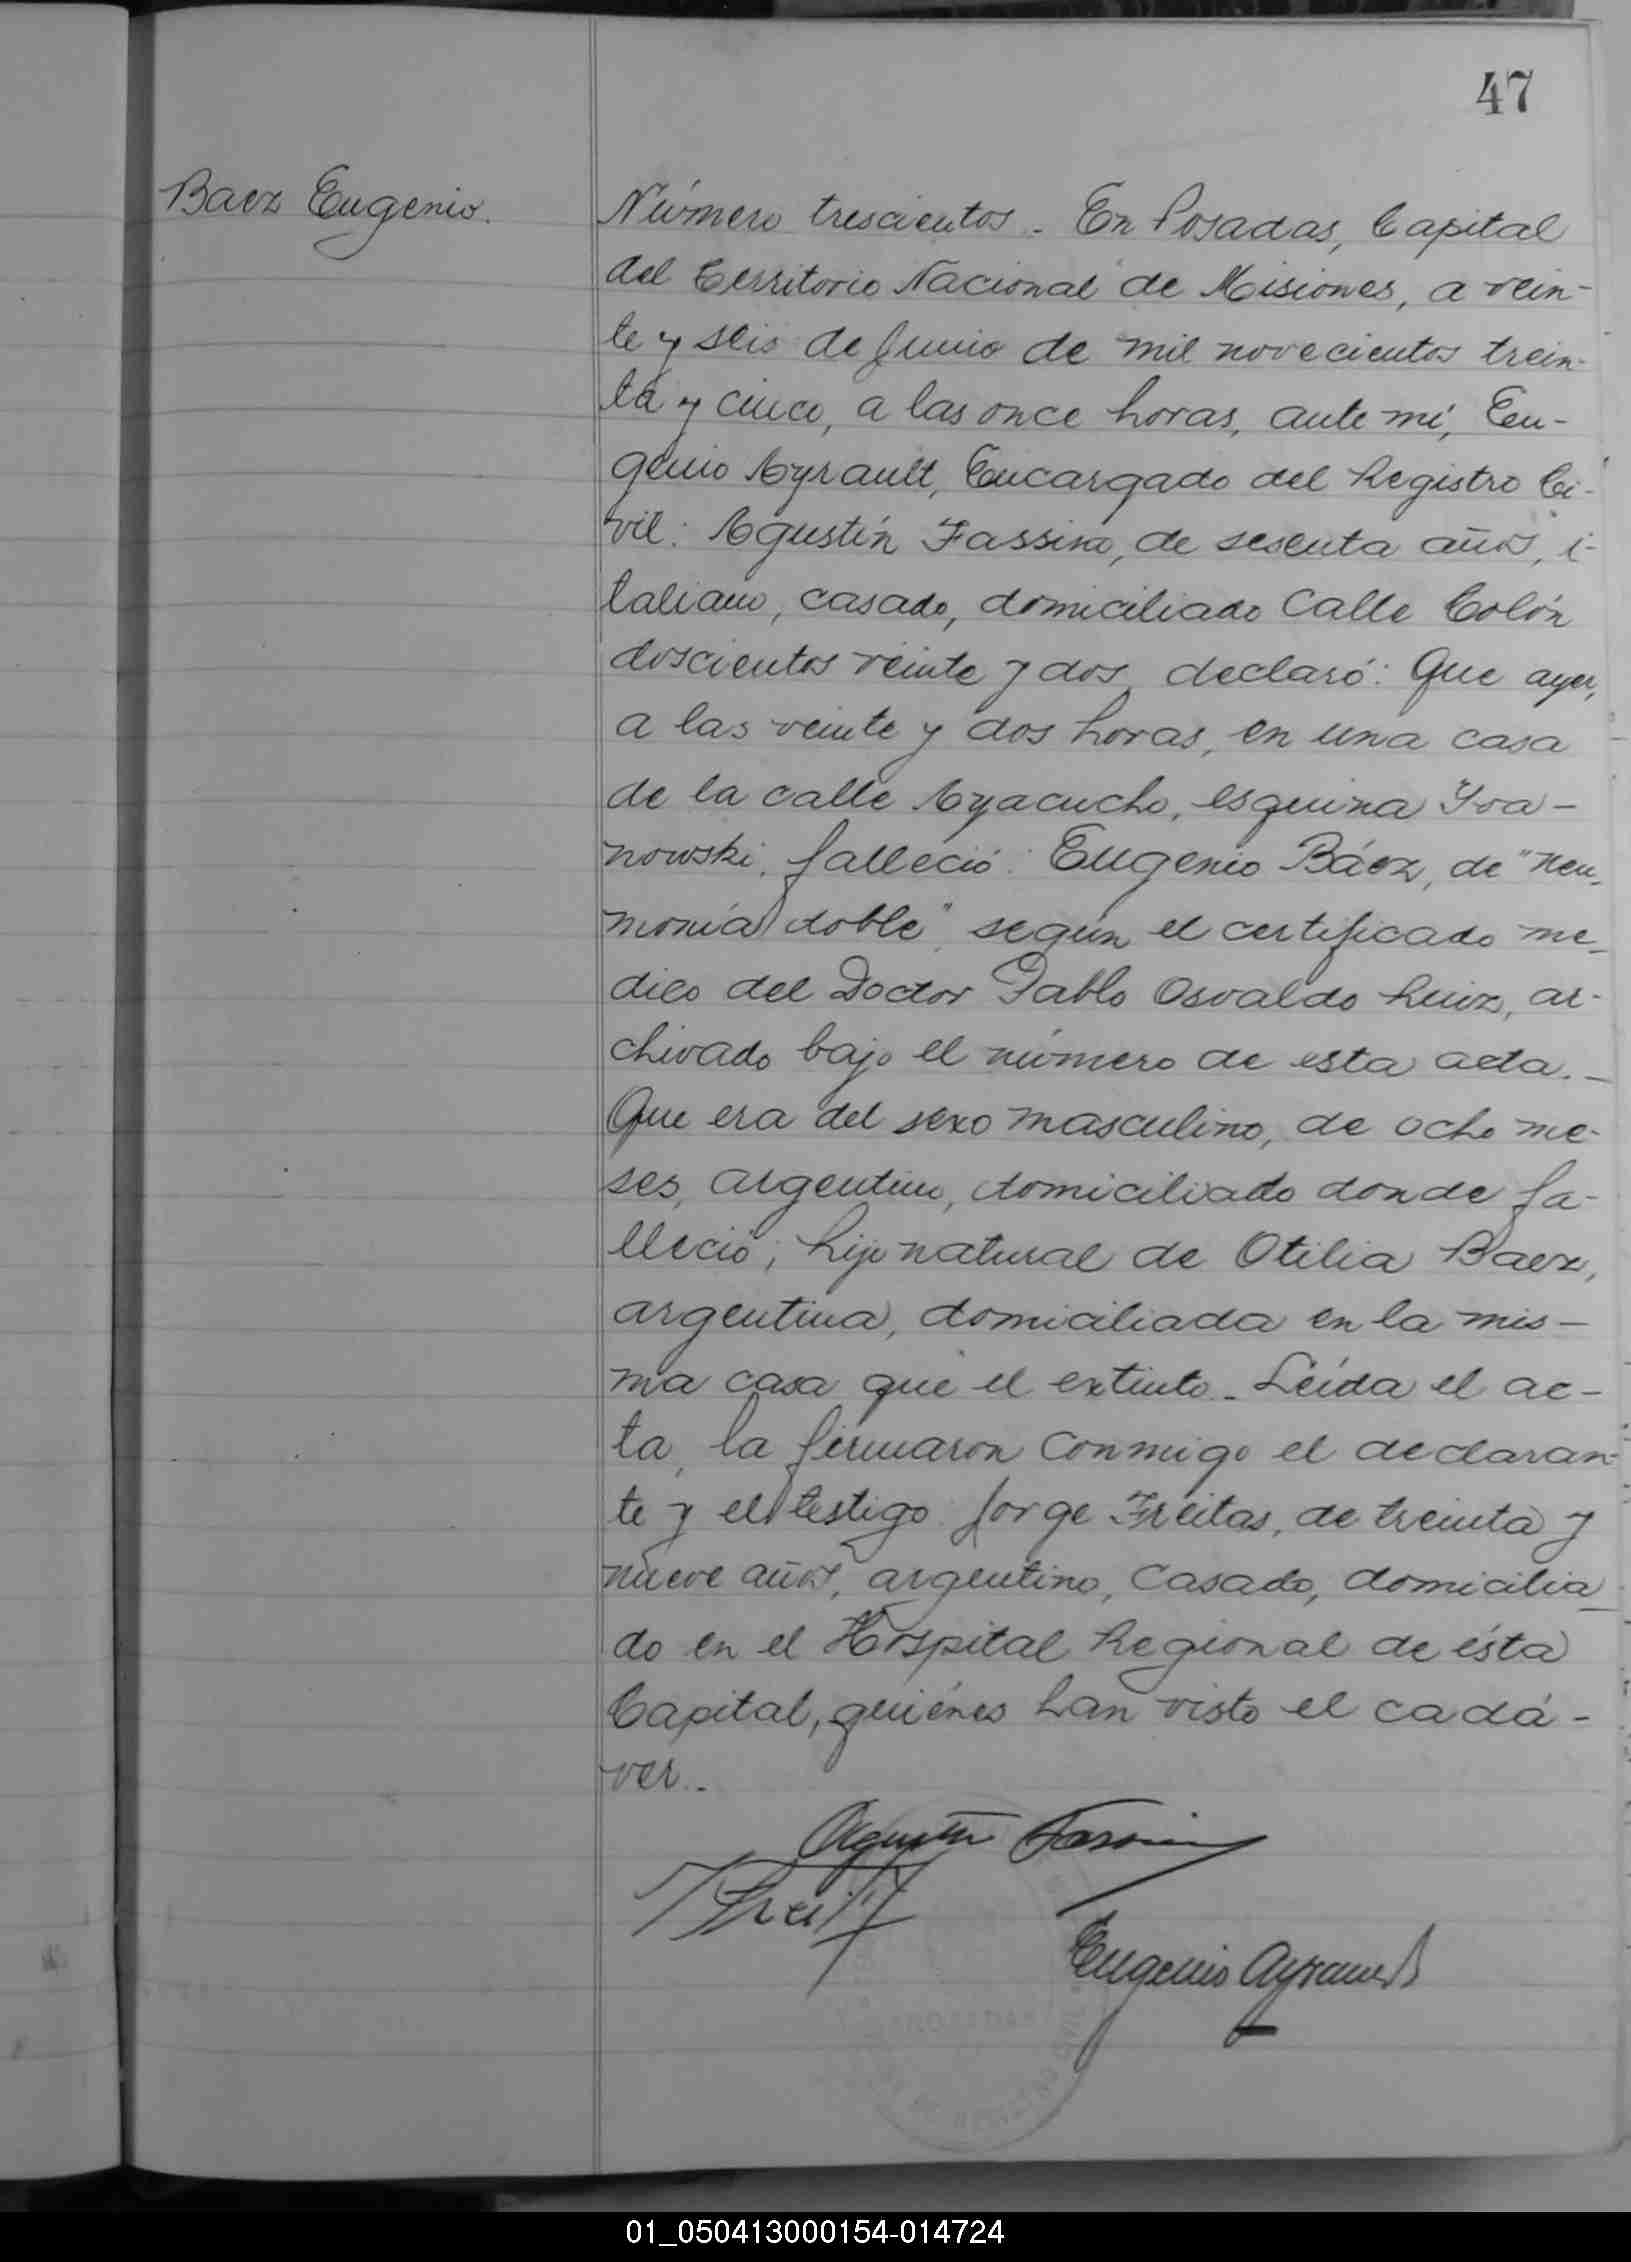 47
Baez Eugenio.
Número trescientos. En Posadas, Capital
del Territorio Nacional de Misiones, a vein-
te y seis de Junio de mil novecientos trein-
ta y cinco, a las once horas, ante mí, Eu-
genio Ayrault, Encargado del Registro Ci-
vil: Agustín Fassino, de sesenta años, i-
taliano, casado, domiciliado Calle Colón
doscientos veinte y dos, declaró: Que ayer,
a las veinte y dos horas, en una casa
de la calle Ayacucho, esquina Iva-
nowski, falleció: Eugenio Báez, de "neu-
monía doble", según el certificado me-
dico del Doctor Pablo Osvaldo Ruiz, ar-
chivado bajo el número de esta acta.-
Que era del sexo masculino, de ocho me-
ses, argentino, domiciliado donde fa-
lleció; hijo natural de Otilia Baez,
argentina, domiciliada en la mis-
ma casa que el extinto.- Leída el ac-
ta, la firmaron conmigo el declaran-
te y el testigo Jorge Freitas, de treinta y
nueve años, argentino, casado, domicilia-
do en el Hospital Regional de ésta
Capital, quiénes han visto el cadá-
ver.-
Agustín Fassino
Eugenio Ayrault
01_050413000154-014724